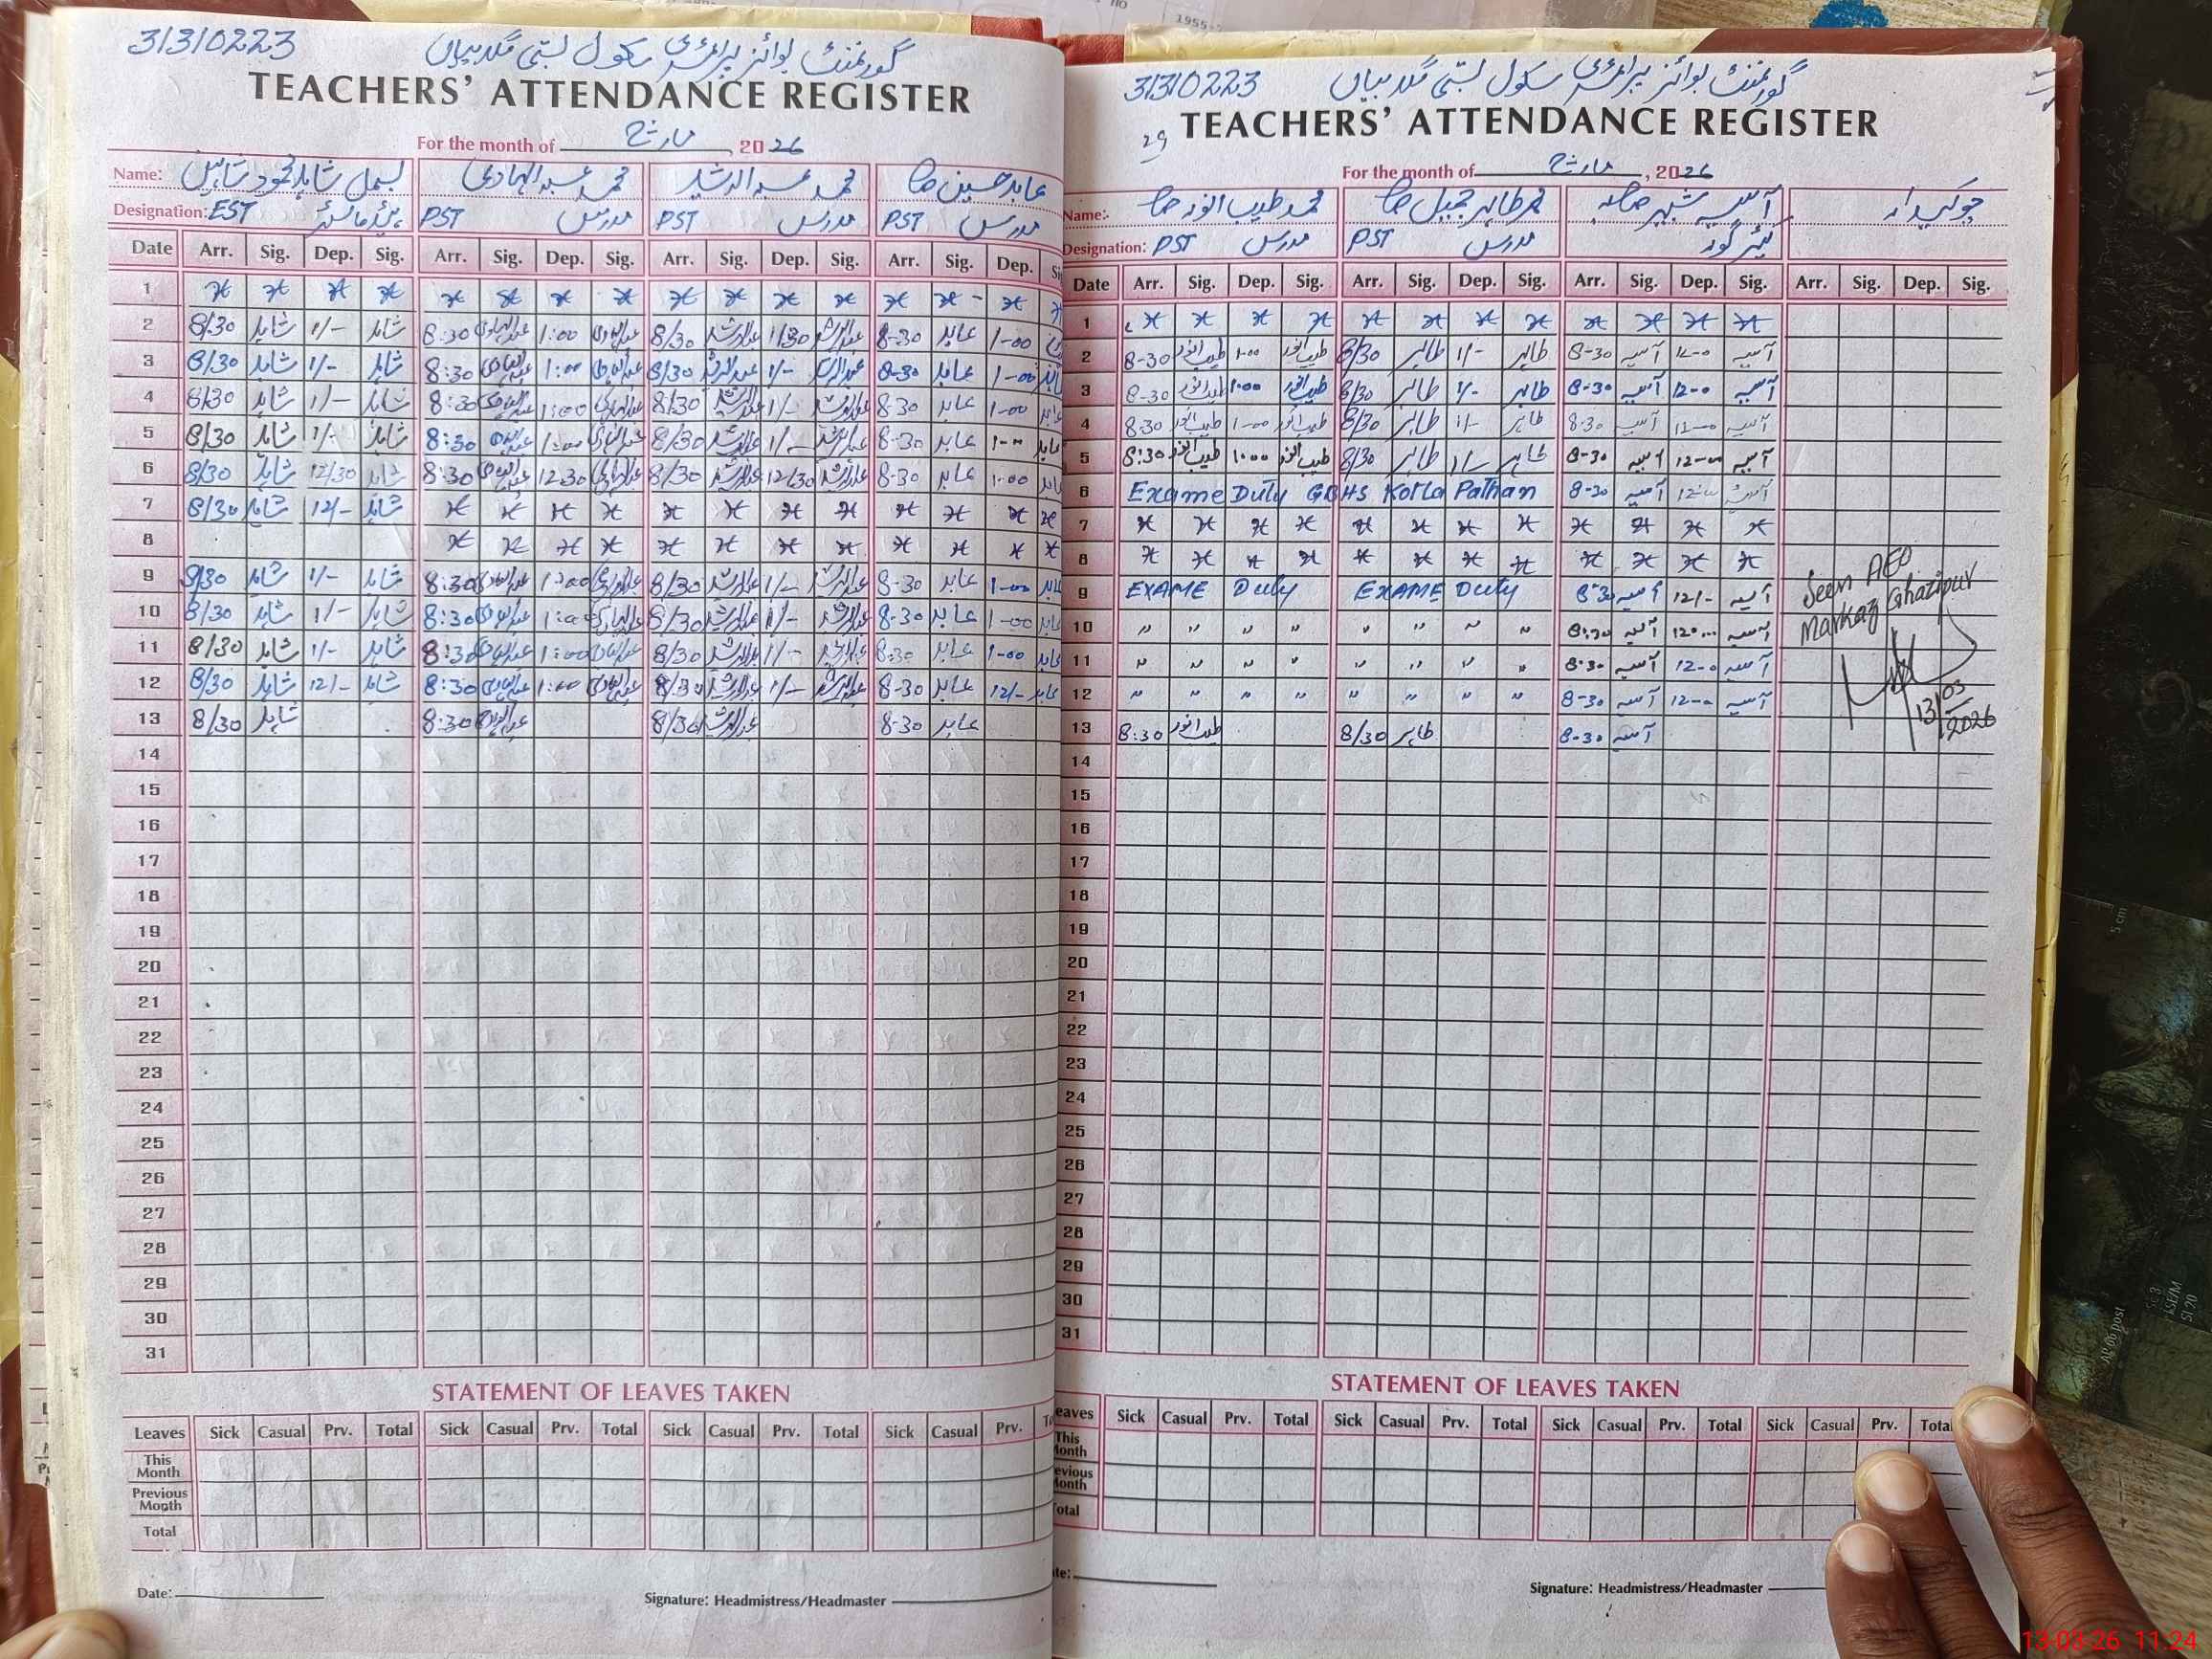 31310223 گورنمنٹ بوائز پرائمری سکول بستی
TEACHERS' ATTENDANCE REGISTER
For the month of مارچ, 2026
Name: شاہد محمود محمد عبدالہادی محمد عبدالرشید عابد حسین
Designation: EST PST مدرس PST مدرس PST مدرس
Date Arr. Sig. Dep. Sig. Arr. Sig. Dep. Sig. Arr. Sig. Dep. Sig. Arr. Sig. Dep.
1
2 8/30 شاہد 1/- شاہد 8:30 عبدالہادی 1:00 عبدالہادی 8/30 عبدالرشید 1/30 عبدالرشید 8-30 عابد 1-00
3 8/30 شاہد 1/- شاہد 8:30 عبدالہادی 1:00 عبدالہادی 8/30 عبدالرشید 1/- عبدالرشید 8-30 عابد 1-00 عابد
4 8/30 شاہد 1/- شاہد 8:30 عبدالہادی 1:00 عبدالہادی 8/30 عبدالرشید 1/- عبدالرشید 8-30 عابد 1-00 عابد
5 8/30 شاہد 1/- شاہد 8:30 عبدالہادی 1:00 عبدالہادی 8/30 عبدالرشید 1/- عبدالرشید 8-30 عابد 1-00 عابد
6 8/30 شاہد 12/30 شاہد 8:30 عبدالہادی 12:30 عبدالہادی 8/30 عبدالرشید 12/30 عبدالرشید 8-30 عابد 1-00 عابد
7 8/30 شاہد 12/- شاہد
8
9 8/30 شاہد 1/- شاہد 8:30 عبدالہادی 1:00 عبدالہادی 8/30 عبدالرشید 1/- عبدالرشید 8-30 عابد 1-00 عابد
10 8/30 شاہد 1/- شاہد 8:30 عبدالہادی 1:00 عبدالہادی 8/30 عبدالرشید 1/- عبدالرشید 8-30 عابد 1-00 عابد
11 8/30 شاہد 1/- شاہد 8:30 عبدالہادی 1:00 عبدالہادی 8/30 عبدالرشید 1/- عبدالرشید 8:30 عابد 1-00 عابد
12 8/30 شاہد 12/- شاہد 8:30 عبدالہادی 1:00 عبدالہادی 8/30 عبدالرشید 1/- عبدالرشید 8-30 عابد 12/- عابد
13 8/30 شاہد 8:30 عبدالہادی 8/30 عبدالرشید 8-30 عابد
14
15
16
17
18
19
20
21
22
23
24
25
26
27
28
29
30
31
STATEMENT OF LEAVES TAKEN
Leaves Sick Casual Prv. Total Sick Casual Prv. Total Sick Casual Prv. Total Sick Casual Prv.
This Month
Previous Month
Total
Date: Signature: Headmistress/Headmaster
31310223 گورنمنٹ بوائز پرائمری سکول بستی
29 TEACHERS' ATTENDANCE REGISTER
For the month of مارچ, 2026
Name: محمد طیب انور محمد طاہر جمیل آسیہ چوکیدار
Designation: PST مدرس PST مدرس کیئر گور
Date Arr. Sig. Dep. Sig. Arr. Sig. Dep. Sig. Arr. Sig. Dep. Sig. Arr. Sig. Dep. Sig.
1
2 8-30 طیب انور 1:00 طیب انور 8/30 طاہر 1/- طاہر 8-30 آسیہ 12-0 آسیہ
3 8-30 طیب انور 1:00 طیب انور 8/30 طاہر 1/- طاہر 8-30 آسیہ 12-0 آسیہ
4 8:30 طیب انور 1-00 طیب انور 8/30 طاہر 1/- طاہر 8:30 آسیہ 12-0 آسیہ
5 8:30 طیب انور 1:00 طیب انور 8/30 طاہر 1/- طاہر 8-30 آسیہ 12-0 آسیہ
6 Exame Duty GBHS Kotla Pathan 8-30 آسیہ آسیہ
7
8
9 EXAME Duty EXAME Duty 8:30 آسیہ 12/- آسیہ
10 " " " " " " " " 8:30 آسیہ آسیہ
11 " " " " " " " " 8:30 آسیہ 12-0 آسیہ
12 " " " " " " " " 8-30 آسیہ 12-0 آسیہ
13 8:30 طیب انور 8/30 طاہر 8-30 آسیہ
Seen AEO
Markaz Ghazipur
13/03/2026
14
15
16
17
18
19
20
21
22
23
24
25
26
27
28
29
30
31
STATEMENT OF LEAVES TAKEN
eaves Sick Casual Prv. Total Sick Casual Prv. Total Sick Casual Prv. Total Sick Casual Prv. Total
This Month
evious Month
otal
te: Signature: Headmistress/Headmaster
13-03-26 11:24